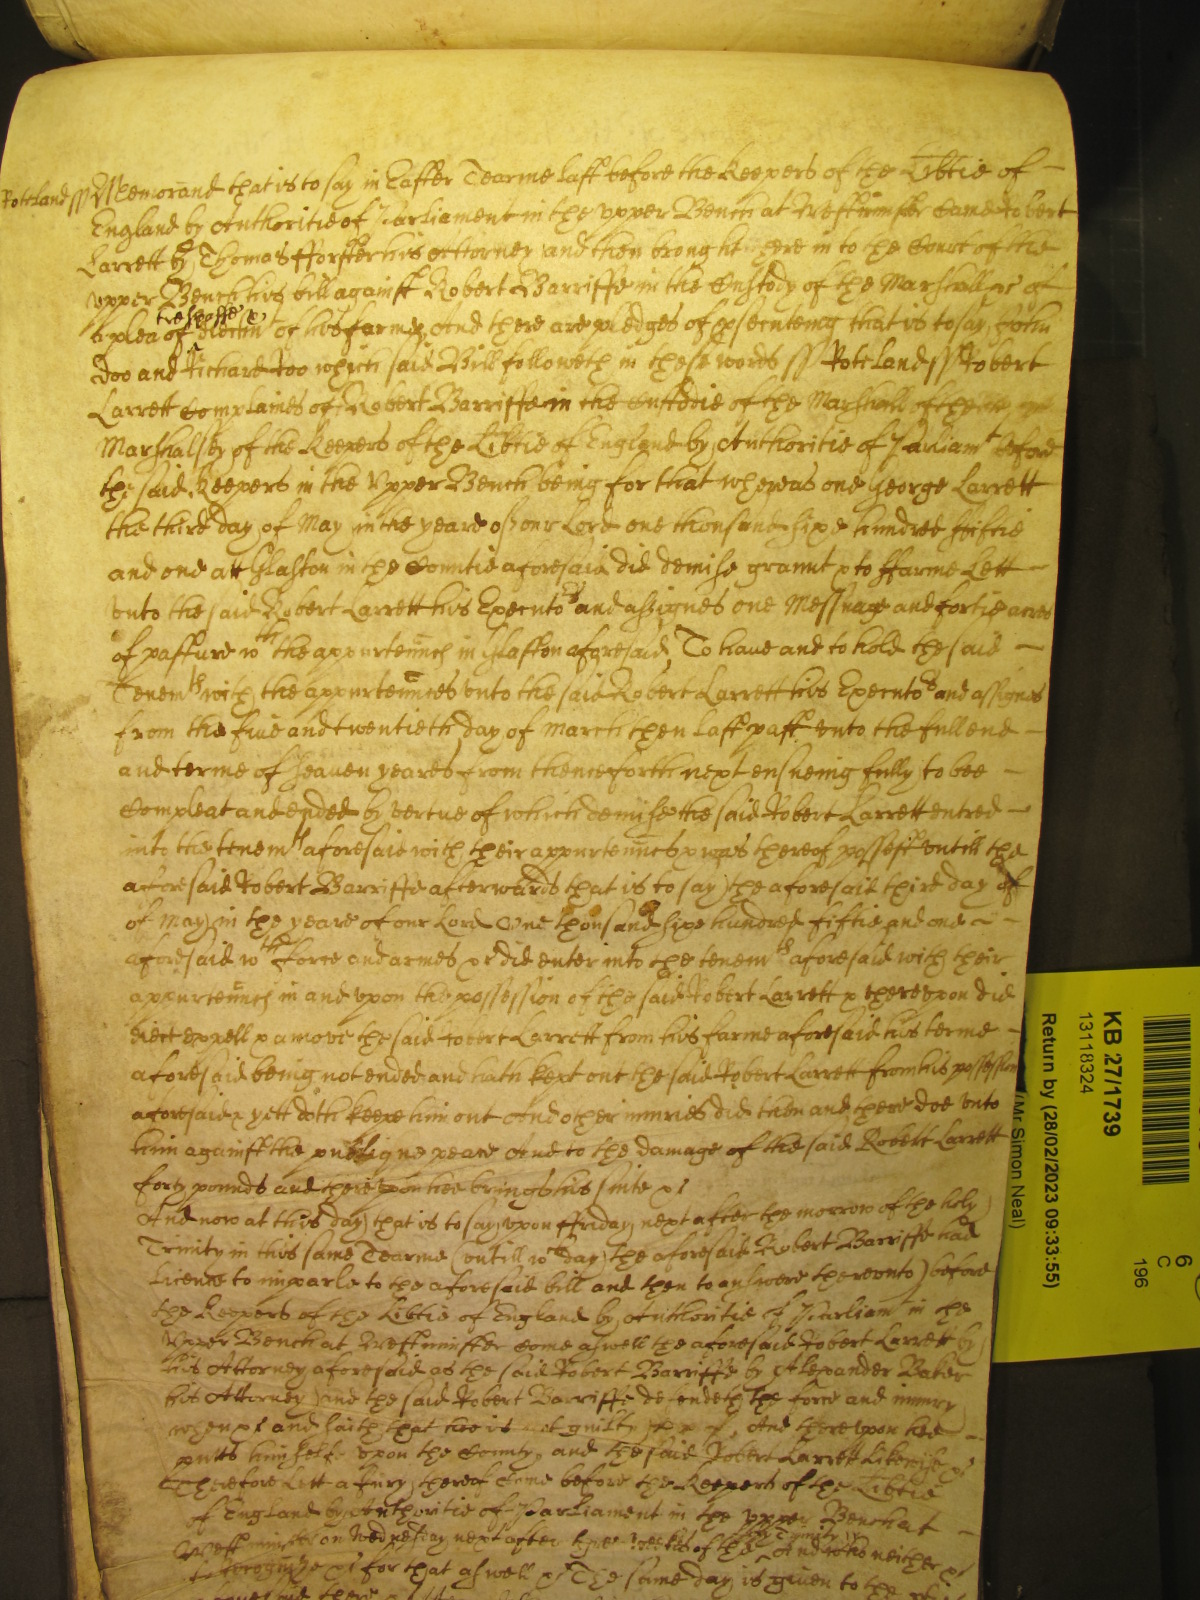 Roteland ss Memorand that is to say in Easter Tearme last before the Keepers of the Libtie of
England by Authoritie of Parliament in the upper Bench at Westminster Came Robert
Larrett by Thomas fforster his Attorney and then brought here in to the Court of the
upper Bench his bill against Robert Barriffe in the Custody of the Marshall &c of
a plea of trespasse & eiectm of his farme And there are pledges of psecuteing that is to say John
Doo and Richard Roo which said Bill followeth in these words ss Roteland ss Robert
Larrett Complaines of Robert Barriffe in the Custodie of the Marshall of the
Marshalsey of the Keepers of the Libtie of England by Authoritie of Parliamt before
the said Keepers in the Upper Bench being for that whereas one George Larrett
the third day of May in the yeare of our Lord one thousand sixe hundred fiftie
and one att Glaston in the Countie aforesaid did demise graunt & to ffarme Lett
unto the said Robert Larrett his Executors and assignes one Messuage and fortie acres
of pasture wth the appurtenncs in Glaston aforesaid, To have and to hold the said
Tenemts with the appurtennces unto the said Robert Larrett his Executors and assignes
from the five and twentieth day of March then last past unto the full end
and terme of seaven yeares from thenceforth next ensueing fully to bee
Compleat and ended by vertue of which demise the said Robert Larrett entred
into the tenemts aforesaid with their appurtenncs & was thereof possest untill the
aforesaid Robert Barriffe afterwards that is to say the aforesaid third day of
of May in the yeare of our Lord One thousand sixe hundred fiftie and one
aforesaid wth force and armes &c did enter into the tenemts aforesaid with their
appurtenncs in and upon the possession of the said Robert Larrett & thereupon did
eiect expell & amove the said Robert Larrett from his farme aforesaid his terme
aforesaid being not ended and hath kept out the said Robert Larrett from his possession
aforesaid & yett doth keepe him out And other iniuries did then and there doe unto
him against the publique peace And to the damage of the said Robert Larrett
forty pounds and thereupon hee brings his suite &c
And now at this day that is to say upon ffriday next after the morrow of the holy
Trinity in this same Tearme (untill wch day the aforesaid Robert Barriffe had
Licence to imparle to the aforesaid bill and then to answere thereunto) before
the Keepers of the Libtie of England by Authoritie of Parliamt in the
Upper Bench at Westminster Come aswell the aforesaid Robert Larrett by
his Attorney aforesaid as the said Robert Barriffe by Alexander Baker
his Attorney And the said Robert Barriffe defendeth the force and iniury
when &c and saith that hee is not guilty And thereupon hee
putts himselfe upon the County, and the said Robert Larrett Likewise &c
Therefore Lett a Jury thereof Come before the Keepers of the Libtie
of England by Authoritie of Parliament in the upper Bench at
Westminster on Wednesday next after three weekes of the holy Trinity And who neither &c
to recognize &c for that aswell &c The same day is given to the
KB 27/1739
13118324
Return by (28/02/2023 09:33:55)
(Mr Simon Neal)
6
C
196